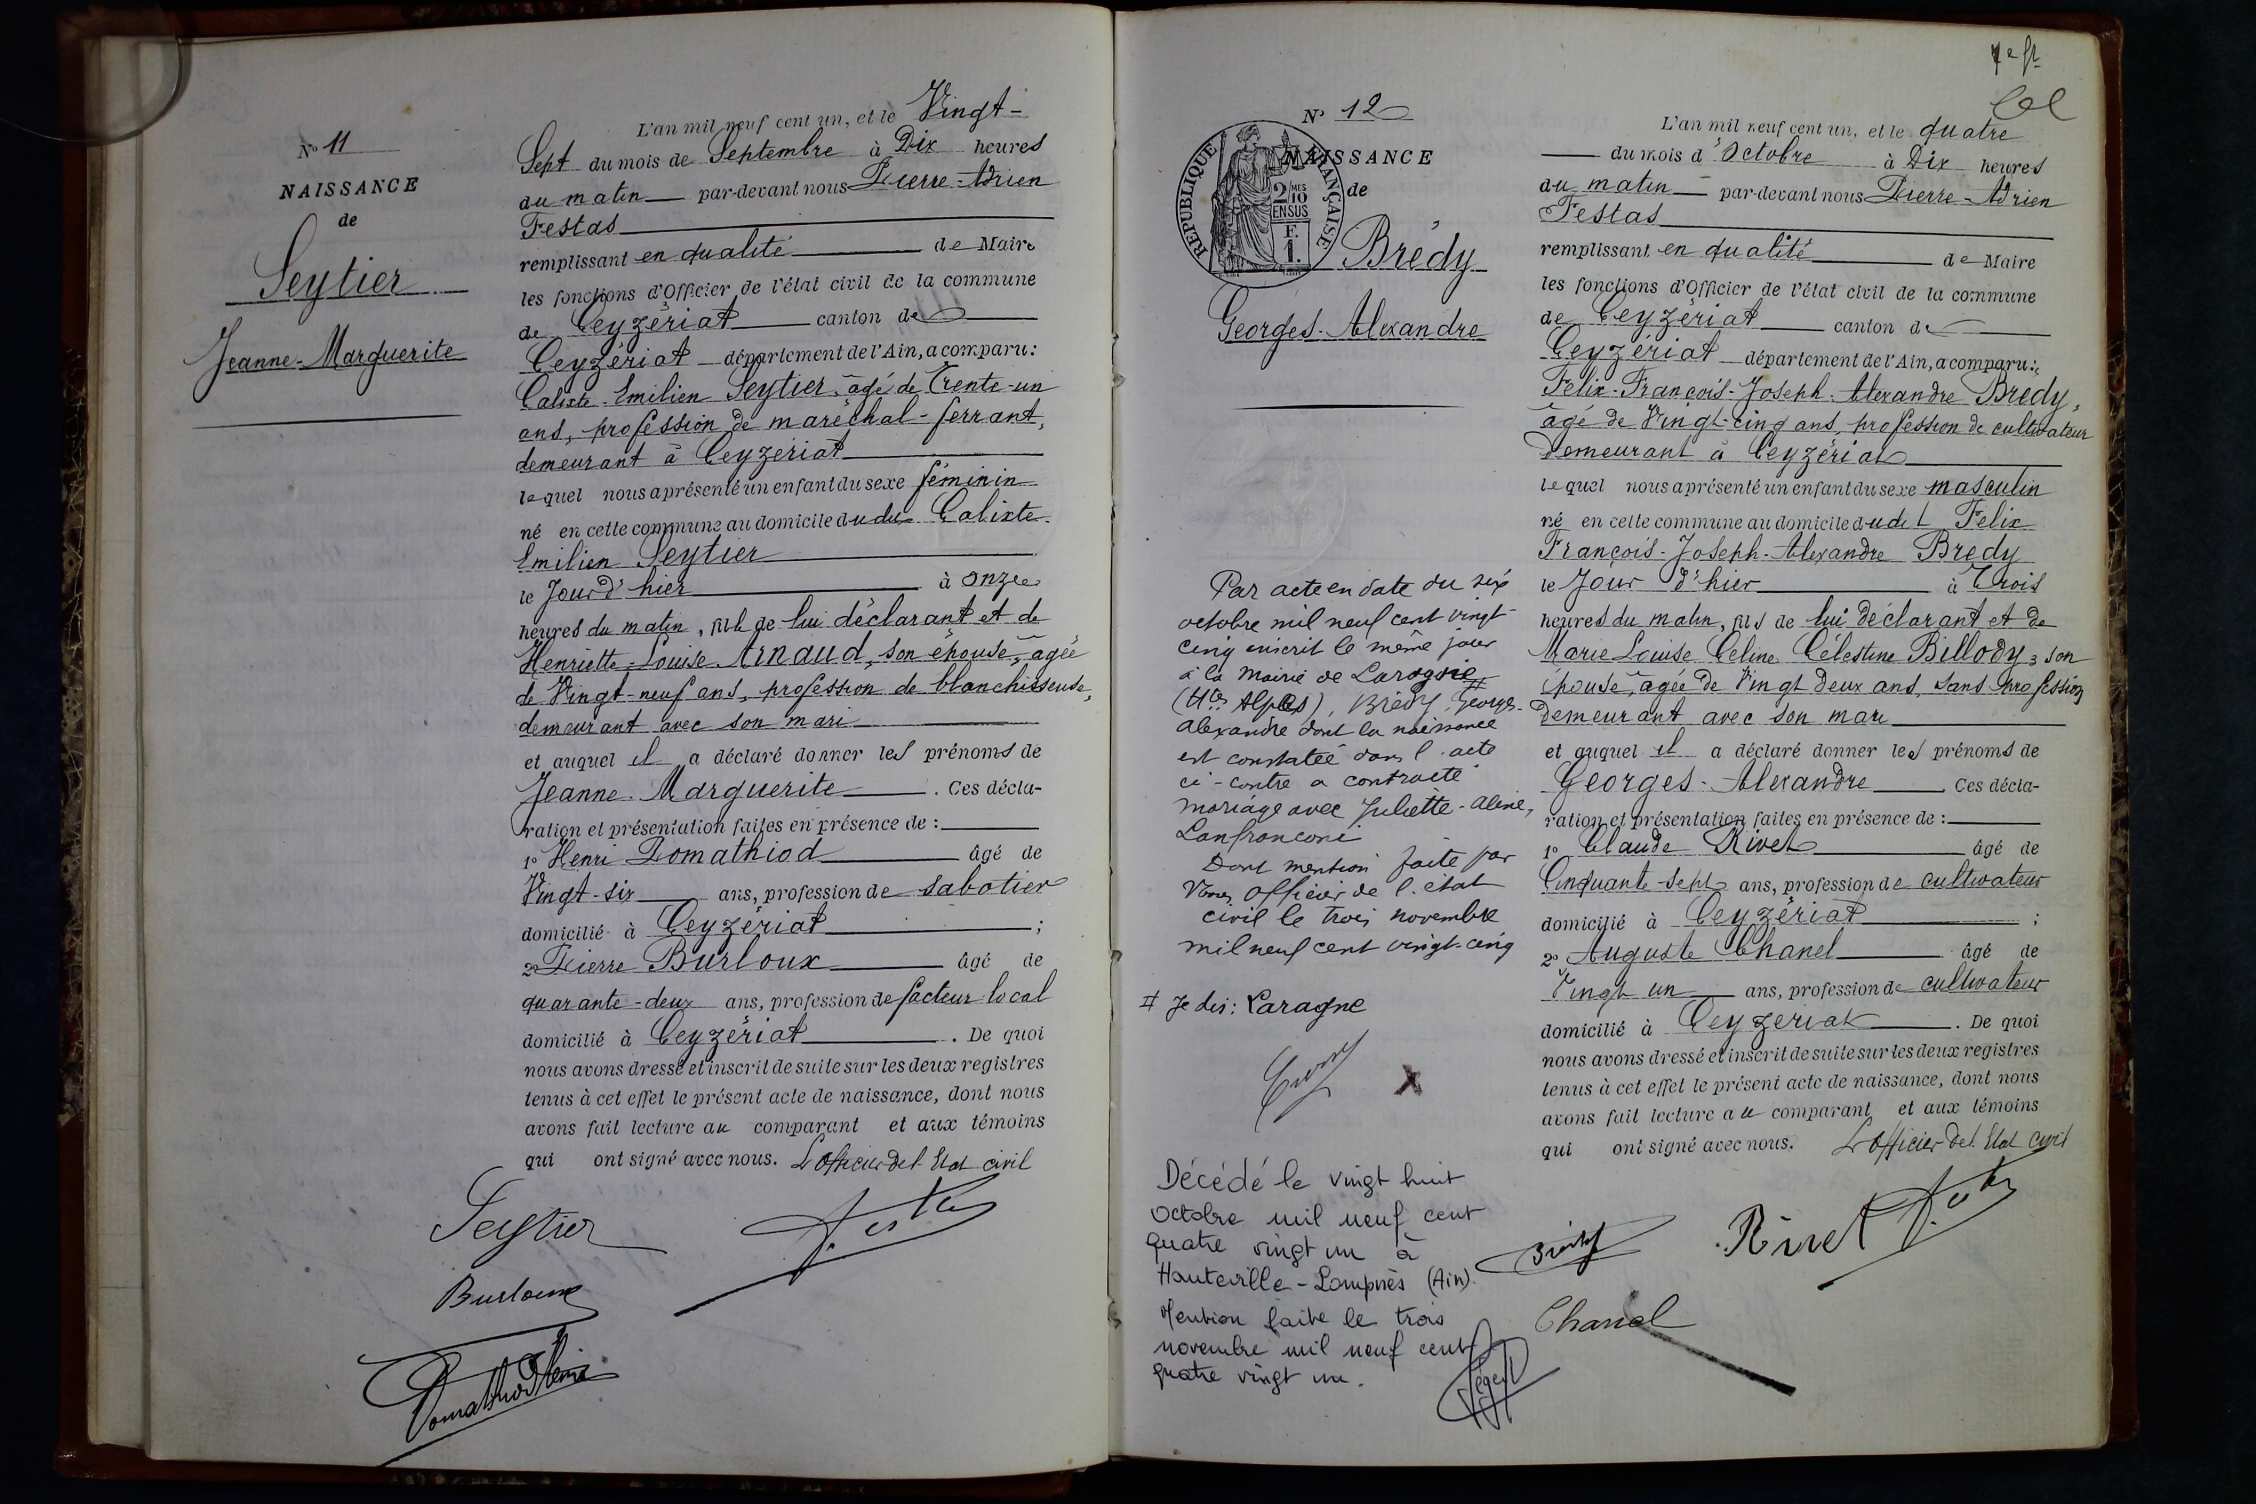 N° 11
NAISSANCE
de
Seytier
Jeanne-Marguerite
L'an mil neuf cent un, et le Vingt-
Sept du mois de Septembre à Dix heures
du matin par-devant nous Pierre-Adrien
Festas
remplissant en qualité de Maire
les fonctions d'Officier de l'état civil de la commune
de Ceyzériat canton de
Ceyzériat département de l'Ain, a comparu:
Calixte-Emilien Seytier, âgé de Trente-un
ans, profession de maréchal-ferrant,
demeurant à Ceyzériat
lequel nous a présenté un enfant du sexe féminin
né en cette commune au domicile du dit Calixte-
Emilien Seytier
le Jour d'hier à onze
heures du matin, fille de lui déclarant et de
Henriette-Louise Arnaud, son épouse, agée
de Vingt-neuf ans, profession de blanchisseuse,
demeurant avec son mari
et auquel il a déclaré donner les prénoms de
Jeanne-Marguerite. Ces décla-
ration et présentation faites en présence de :
1° Henri Domathiod âgé de
Vingt-six ans, profession de sabotier
domicilié à Ceyzériat ;
2° Pierre Burloux âgé de
quarante-deux ans, profession de facteur local
domicilié à Ceyzériat. De quoi
nous avons dressé et inscrit de suite sur les deux registres
tenus à cet effet le présent acte de naissance, dont nous
avons fait lecture au comparant et aux témoins
qui ont signé avec nous. L'officier de l'Etat civil
Seytier
Burloux
N° 12
NAISSANCE
de
REPUBLIQUE FRANÇAISE
2/10 MES
EN SUS
F.
1.
Brédy
Georges-Alexandre
Par acte en date du six
octobre mil neuf cent vingt-
cinq inscrit le même jour
à la mairie de Laragnie #
(Htes Alpes), Brédy Georges-
Alexandre dont la naissance
est constatée dans l'acte
ci-contre a contracté
mariage avec Juliette-Aline,
Lanfranconi
Dont mention faite par
Nous officier de l'état
civil le trois novembre
mil neuf cent vingt-cinq
# Je dis: Laragne
X
Décédé le vingt huit
Octobre mil neuf cent
quatre vingt un à
Hauteville-Lompnès (Ain).
Mention faite le trois
novembre mil neuf cent
quatre vingt un.
L'an mil neuf cent un, et le quatre
du mois d'Octobre à Dix heures
du matin par-devant nous Pierre-Adrien
Festas
remplissant en qualité de Maire
les fonctions d'Officier de l'état civil de la commune
de Ceyzériat canton de
Ceyzériat département de l'Ain, a comparu:
Félix-François-Joseph-Alexandre Bredy,
âgé de Vingt-cinq ans, profession de cultivateur
Demeurant à Ceyzériat
lequel nous a présenté un enfant du sexe masculin
né en cette commune au domicile du dit Félix
François-Joseph-Alexandre Bredy
le Jour d'hier à Trois
heures du matin, fils de lui déclarant et de
Marie Louise Celine Célestine Billody, son
épouse, agée de Vingt deux ans, sans profession
Demeurant avec son mari
et auquel il a déclaré donner les prénoms de
Georges-Alexandre Ces décla-
ration et présentation faites en présence de :
1° Claude Rivet âgé de
Cinquante-sept ans, profession de cultivateur
domicilié à Ceyzériat ;
2° Auguste Chanel âgé de
Vingt un ans, profession de cultivateur
domicilié à Ceyzeriat. De quoi
nous avons dressé et inscrit de suite sur les deux registres
tenus à cet effet le présent acte de naissance, dont nous
avons fait lecture au comparant et aux témoins
qui ont signé avec nous. L'officier de l'Etat civil
Rivet
Chanel